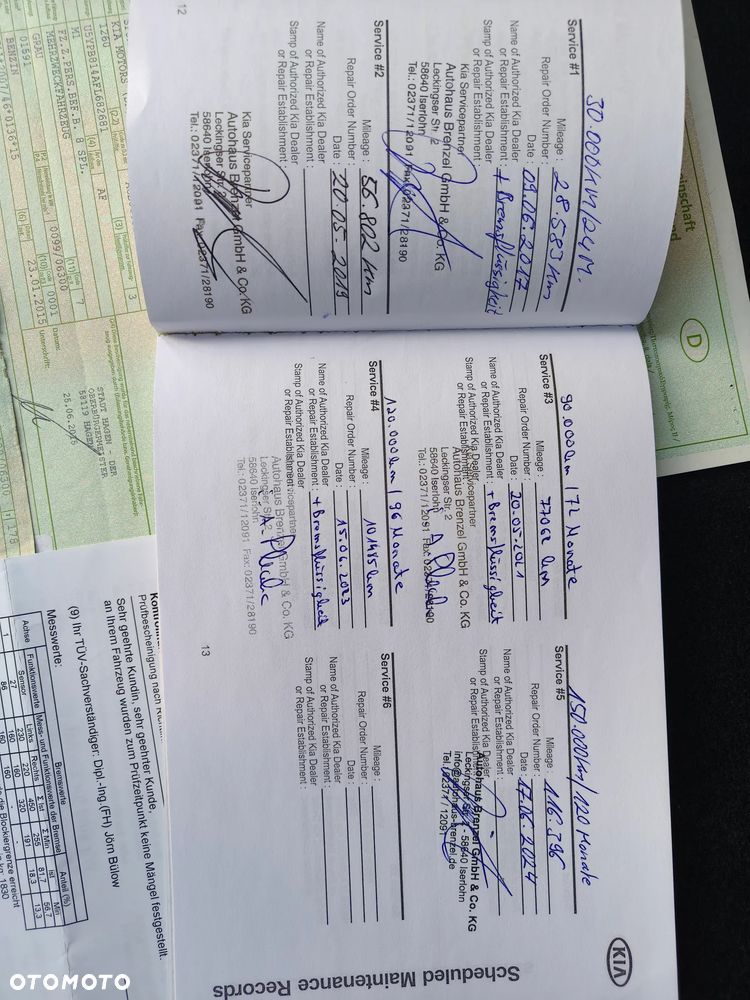 KIA
Scheduled Maintenance Records
Service #1
30.000 km/24 M.
Mileage : 28.583 km
Repair Order Number :
Date : 09.06.2017
Name of Authorized Kia Dealer
or Repair Establishment : + Bremsflüssigkeit
Stamp of Authorized Kia Dealer
or Repair Establishment :
Kia Servicepartner
Autohaus Brenzel GmbH & Co. KG
Leckingser Str. 2
58640 Iserlohn
Tel.: 02371/12091 Fax: 02371/28190
Service #2
Mileage : 55.802 km
Repair Order Number :
Date : 20.05.2019
Name of Authorized Kia Dealer
or Repair Establishment :
Stamp of Authorized Kia Dealer
or Repair Establishment :
Kia Servicepartner
Autohaus Brenzel GmbH & Co. KG
Leckingser Str. 2
58640 Iserlohn
Tel.: 02371/12091 Fax: 02371/28190
12
Service #3
90.000 km / 72 Monate
Mileage : 77062 km
Repair Order Number :
Date : 20.05.2021
Name of Authorized Kia Dealer
or Repair Establishment : + Bremsflüssigkeit
Stamp of Authorized Kia Dealer
or Repair Establishment :
Servicepartner
Autohaus Brenzel GmbH & Co. KG
Leckingser Str. 2
58640 Iserlohn
Tel.: 02371/12091 Fax: 02371/28190
Service #4
120.000 km / 96 Monate
Mileage : 101485 km
Repair Order Number :
Date : 15.06.2023
Name of Authorized Kia Dealer
or Repair Establishment : + Bremsflüssigkeit
Stamp of Authorized Kia Dealer
or Repair Establishment :
Servicepartner
Autohaus Brenzel GmbH & Co. KG
Leckingser Str. 2
58640 Iserlohn
Tel.: 02371/12091 Fax: 02371/28190
Service #5
150.000 km / 120 Monate
Mileage : 116.396
Repair Order Number :
Date : 17.06.2024
Name of Authorized Kia Dealer
or Repair Establishment :
Stamp of Authorized Kia Dealer
or Repair Establishment :
Autohaus Brenzel GmbH & Co. KG
Leckingser Str. 2 - 58640 Iserlohn
info@autohaus-brenzel.de
Tel. 02371/12091
Service #6
Mileage :
Repair Order Number :
Date :
Name of Authorized Kia Dealer
or Repair Establishment :
Stamp of Authorized Kia Dealer
or Repair Establishment :
13
D
KIA MOTORS
1260
U5YPB814AFL682681
M1
FZ.Z.PERS.BEF.B. 8 SPL.
MEHRZWECKFAHRZEUG
GRAU
01591
BENZIN
AF
0099/06300
23.01.2015
STADT HAGEN DER
OBERBÜRGERMEISTER
58119 HAGEN
26.06.2015
Prüfbescheinigung nach
Sehr geehrte Kundin, sehr geehrter Kunde,
an Ihrem Fahrzeug wurden zum Prüfzeitpunkt keine Mängel festgestellt.
(9) Ihr TÜV-Sachverständiger: Dipl.-Ing.(FH) Jörn Bülow
Messwerte:
Bremswerte
Achse
Funktionswerte
Mess- und Funktionswerte der Bremsen
Anteil (%)
Sensor
Links
Rechts
Σ Ist
Σ Min
Ist
Min
die Blockiergrenze erreicht
OTOMOTO